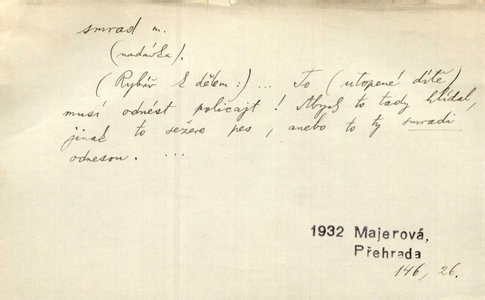 smrad m.
(nadávka).
(Rybář k dětem:) ... To (utopené dítě)
musí odnést policajt! Abych to tady hlídal,
jinak to sežere pes, anebo to ty smradi
odnesou. ...
1932 Majerová,
Přehrada
146, 26.